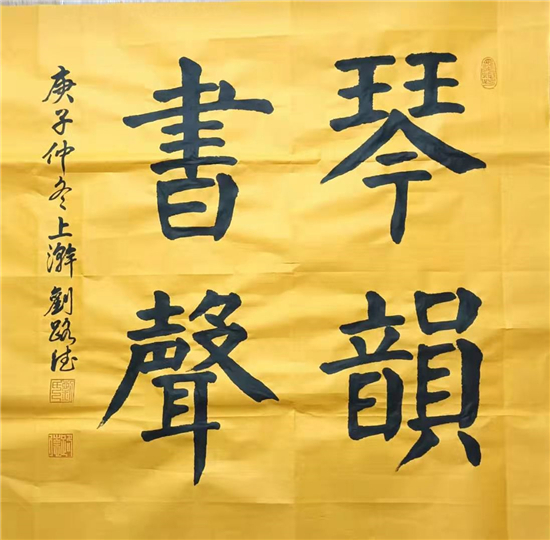 琴韻
書聲
庚子仲冬上澣劉路德